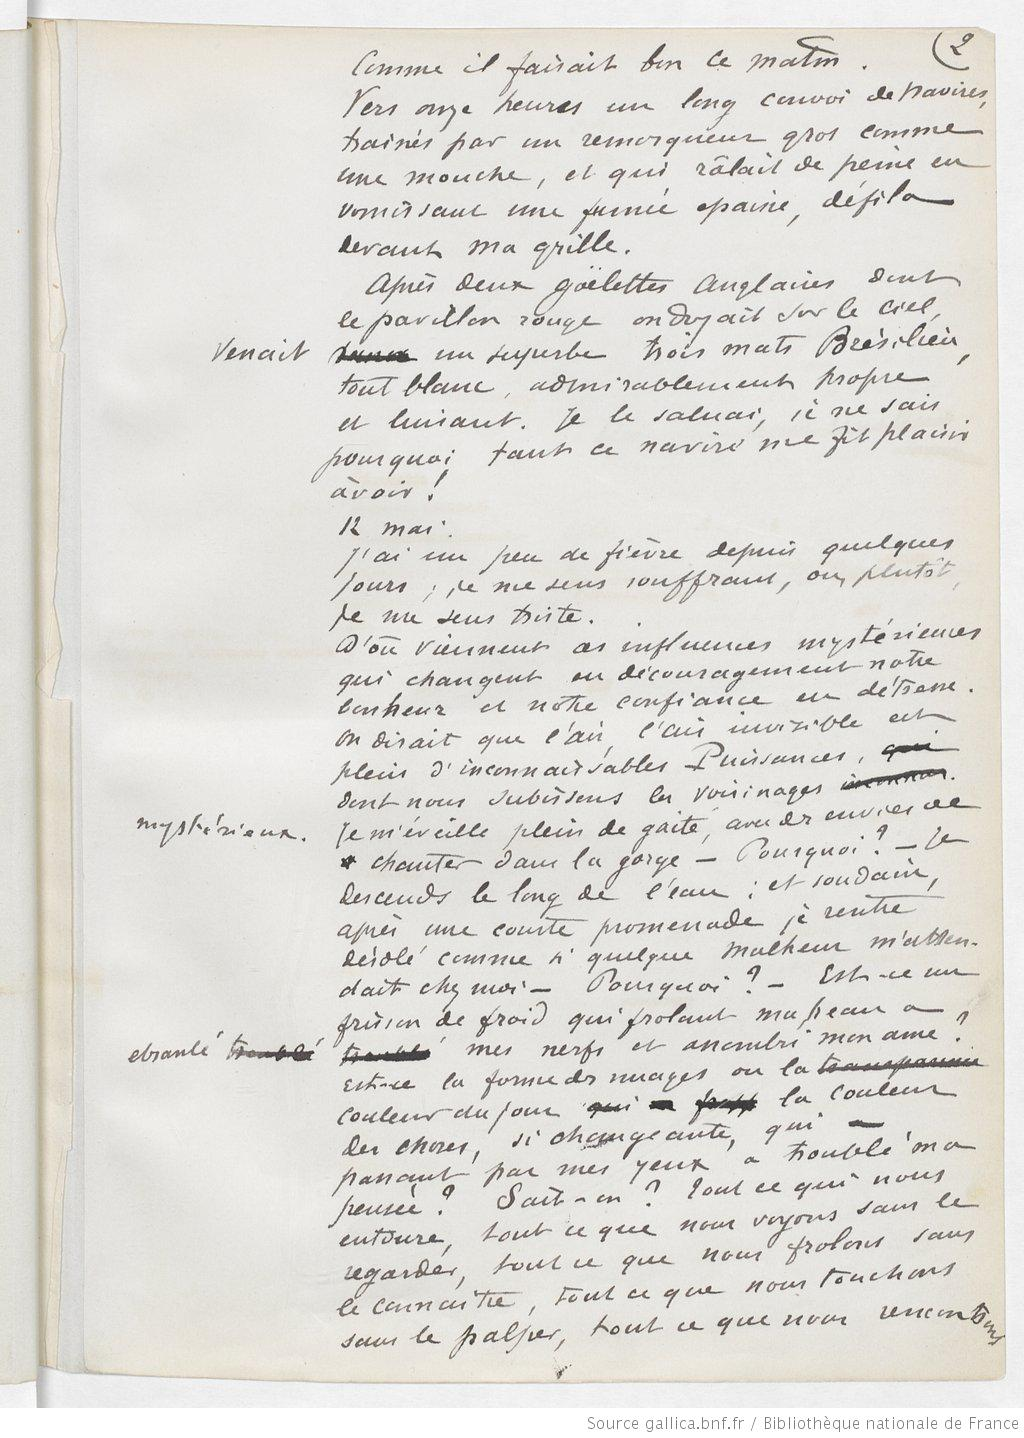 2
Comme il faisait bon ce matin.
Vers onze heures un long convoi de navires,
trainés par un remorqueur gros comme
une mouche, et qui râlait de peine en
vomissant une fumée epaisse, défila
devant ma grille.
Après deux goëlettes Anglaises dont
le pavillon rouge ondoyait sur le ciel,
Venait un superbe trois mats Brésilien,
tout blanc, admirablement propre
et luisant. Je le saluai, je ne sais
pourquoi, tant ce navire me fit plaisir
à voir !
12 mai.
J'ai un peu de fièvre depuis quelques
jours ; je me sens souffrant, ou plutôt,
je me sens triste.
D'où viennent ces influences mystérieuses
qui changent en découragement notre
bonheur et notre confiance en détresse.
On dirait que l'air, l'air invisible est
plein d'inconnaissables Puissances, qui
dont nous subissons les voisinages inconnus.
mystérieux.
Je m'éveille plein de gaité, avec des envies de
chanter dans la gorge — Pourquoi ? — Je
descends le long de l'eau ; et soudain,
après une courte promenade je rentre
désolé comme si quelque malheur m'atten-
dait chez moi — Pourquoi ? — Est-ce un
frisson de froid qui frolant ma peau a
ebranlé troublé troublé mes nerfs et assombri mon ame ?
Est-ce la forme des nuages ou la transparence
couleur du jour qui a la couleur
des choses, si changeante, qui
passant par mes yeux a troublé ma
pensée ? Sait-on ? Tout ce qui nous
entoure, tout ce que nous voyons sans le
regarder, tout ce que nous frolons sans
le connaitre, tout ce que nous touchons
sans le palper, tout ce que nous rencontrons
Source gallica.bnf.fr / Bibliothèque nationale de France